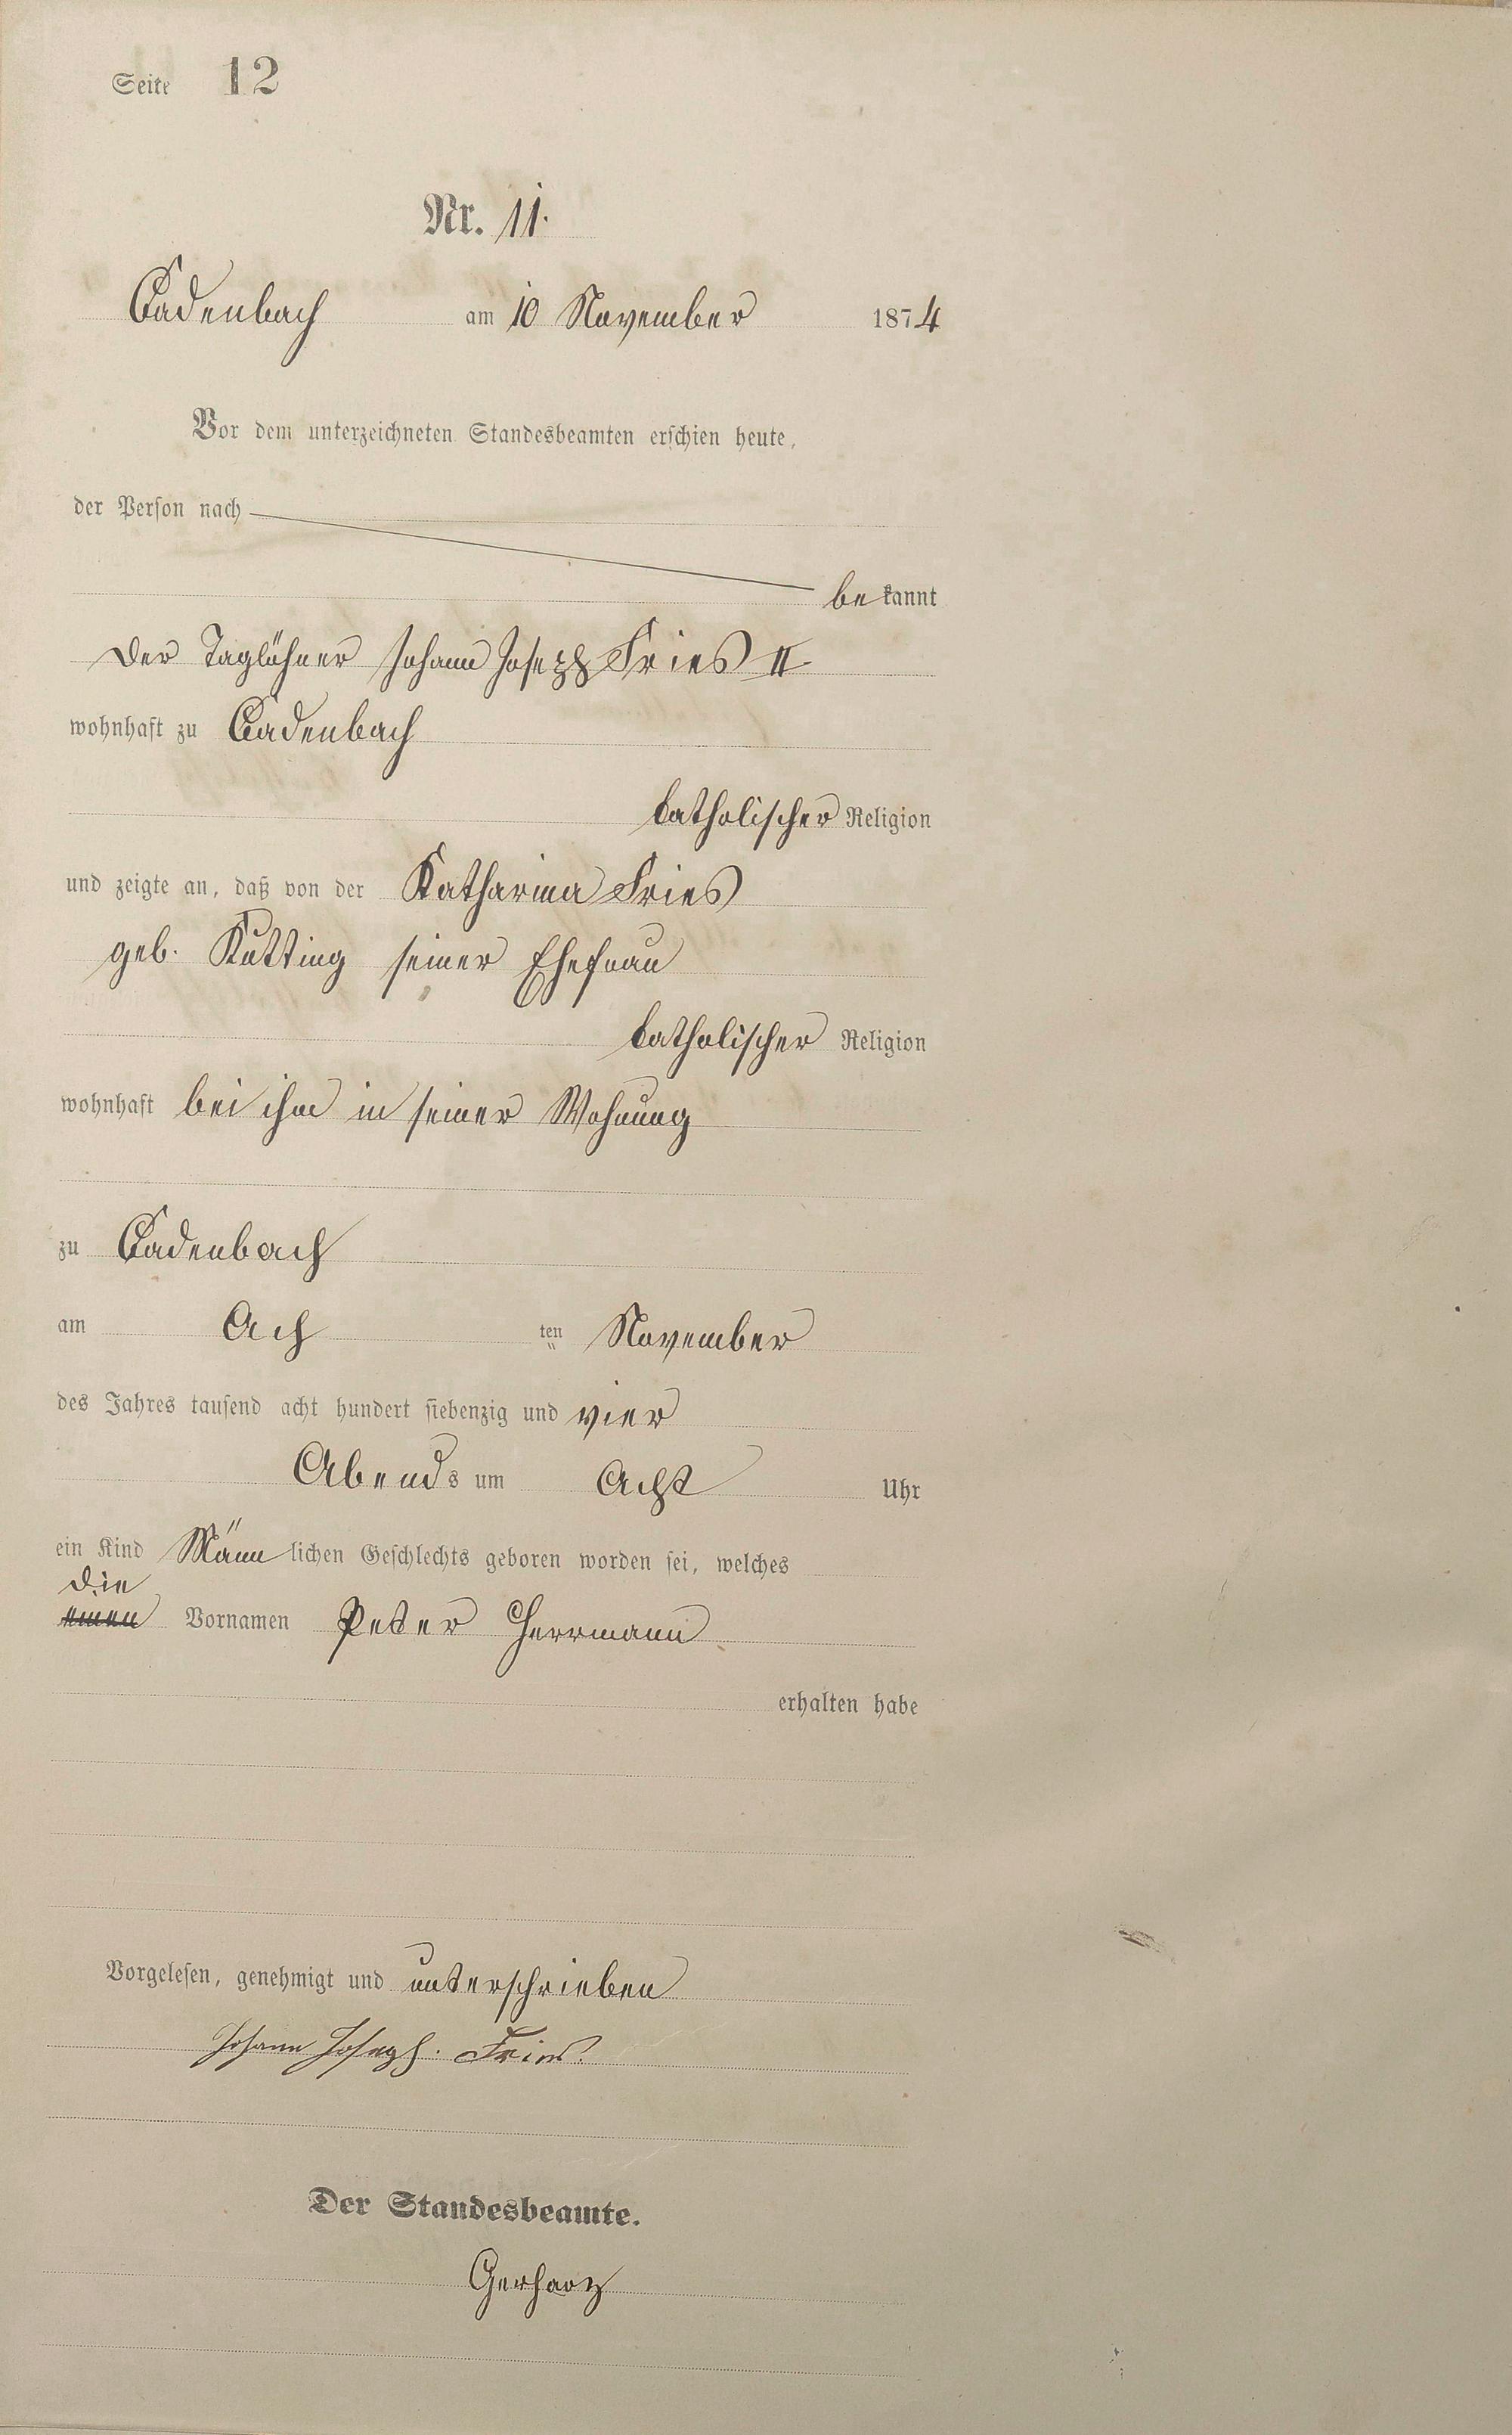 Seite 12
Nr. 11.
Cadenbach am 10 November 1874
Vor dem unterzeichneten Standesbeamten erschien heute,
der Person nach
bekannt
der Taglöhner Johann Joseph Fries II
wohnhaft zu Cadenbach
katholischer Religion
und zeigte an, daß von der Katharina Fries
geb. Kutting seiner Ehefrau
katholischer Religion
wohnhaft bei ihm in seiner Wohnung
zu Cadenbach
am Ach ten November
des Jahres tausend acht hundert siebenzig und vier
Abends um Acht Uhr
ein Kind Männlichen Geschlechts geboren worden sei, welches
die
einen Vornamen Peter Herrmann
erhalten habe
Vorgelesen, genehmigt und unterschrieben
Johann Joseph. Fries.
Der Standesbeamte.
Gerharz